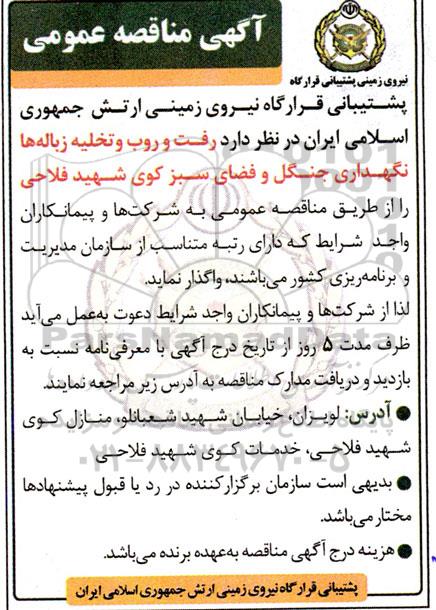 آگهی مناقصه عمومی
نیروی زمینی پشتیبانی قرارگاه
پشتیبانی قرارگاه نیروی زمینی ارتش جمهوری
اسلامی ایران در نظر دارد رفت و روب وتخلیه زباله‌ها
نگهداری جنگل و فضای سبز کوی شهید فلاحی
را از طریق مناقصه عمومی به شرکت‌ها و پیمانکاران
واجد شرایط که دارای رتبه متناسب از سازمان مدیریت
و برنامه‌ریزی کشور می‌باشند، واگذار نماید.
لذا از شرکت‌ها و پیمانکاران واجد شرایط دعوت به‌عمل می‌آید
ظرف مدت ۵ روز از تاریخ درج آگهی با معرفی‌نامه نسبت به
بازدید و دریافت مدارک مناقصه به آدرس زیر مراجعه نمایند.
● آدرس: لویزان، خیابان شهید شعبانلو، منازل کوی
شهید فلاحی، خدمات کوی شهید فلاحی
● بدیهی است سازمان برگزارکننده در رد یا قبول پیشنهادها
مختار می‌باشد.
● هزینه درج آگهی مناقصه به‌عهده برنده می‌باشد.
پشتیبانی قرارگاه نیروی زمینی ارتش جمهوری اسلامی ایران
ParsNamadData
۰۲۱-۸۸۳۴۹۶۷۰-۵